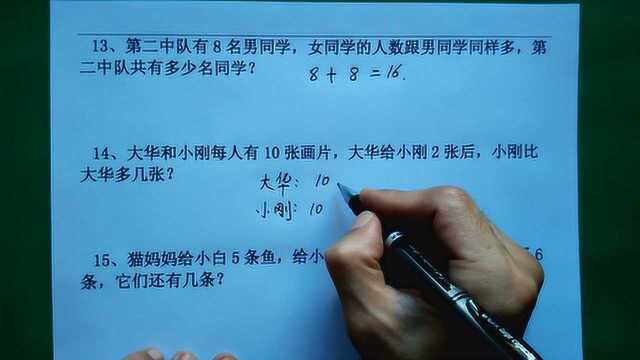 13、第二中队有 8 名男同学，女同学的人数跟男同学同样多，第
二中队共有多少名同学？
8 + 8 = 16.
14、大华和小刚每人有 10 张画片，大华给小刚 2 张后，小刚比
大华多几张？
大华： 10
小刚： 10
15、猫妈妈给小白 5 条鱼，给小 6
条，它们还有几条？